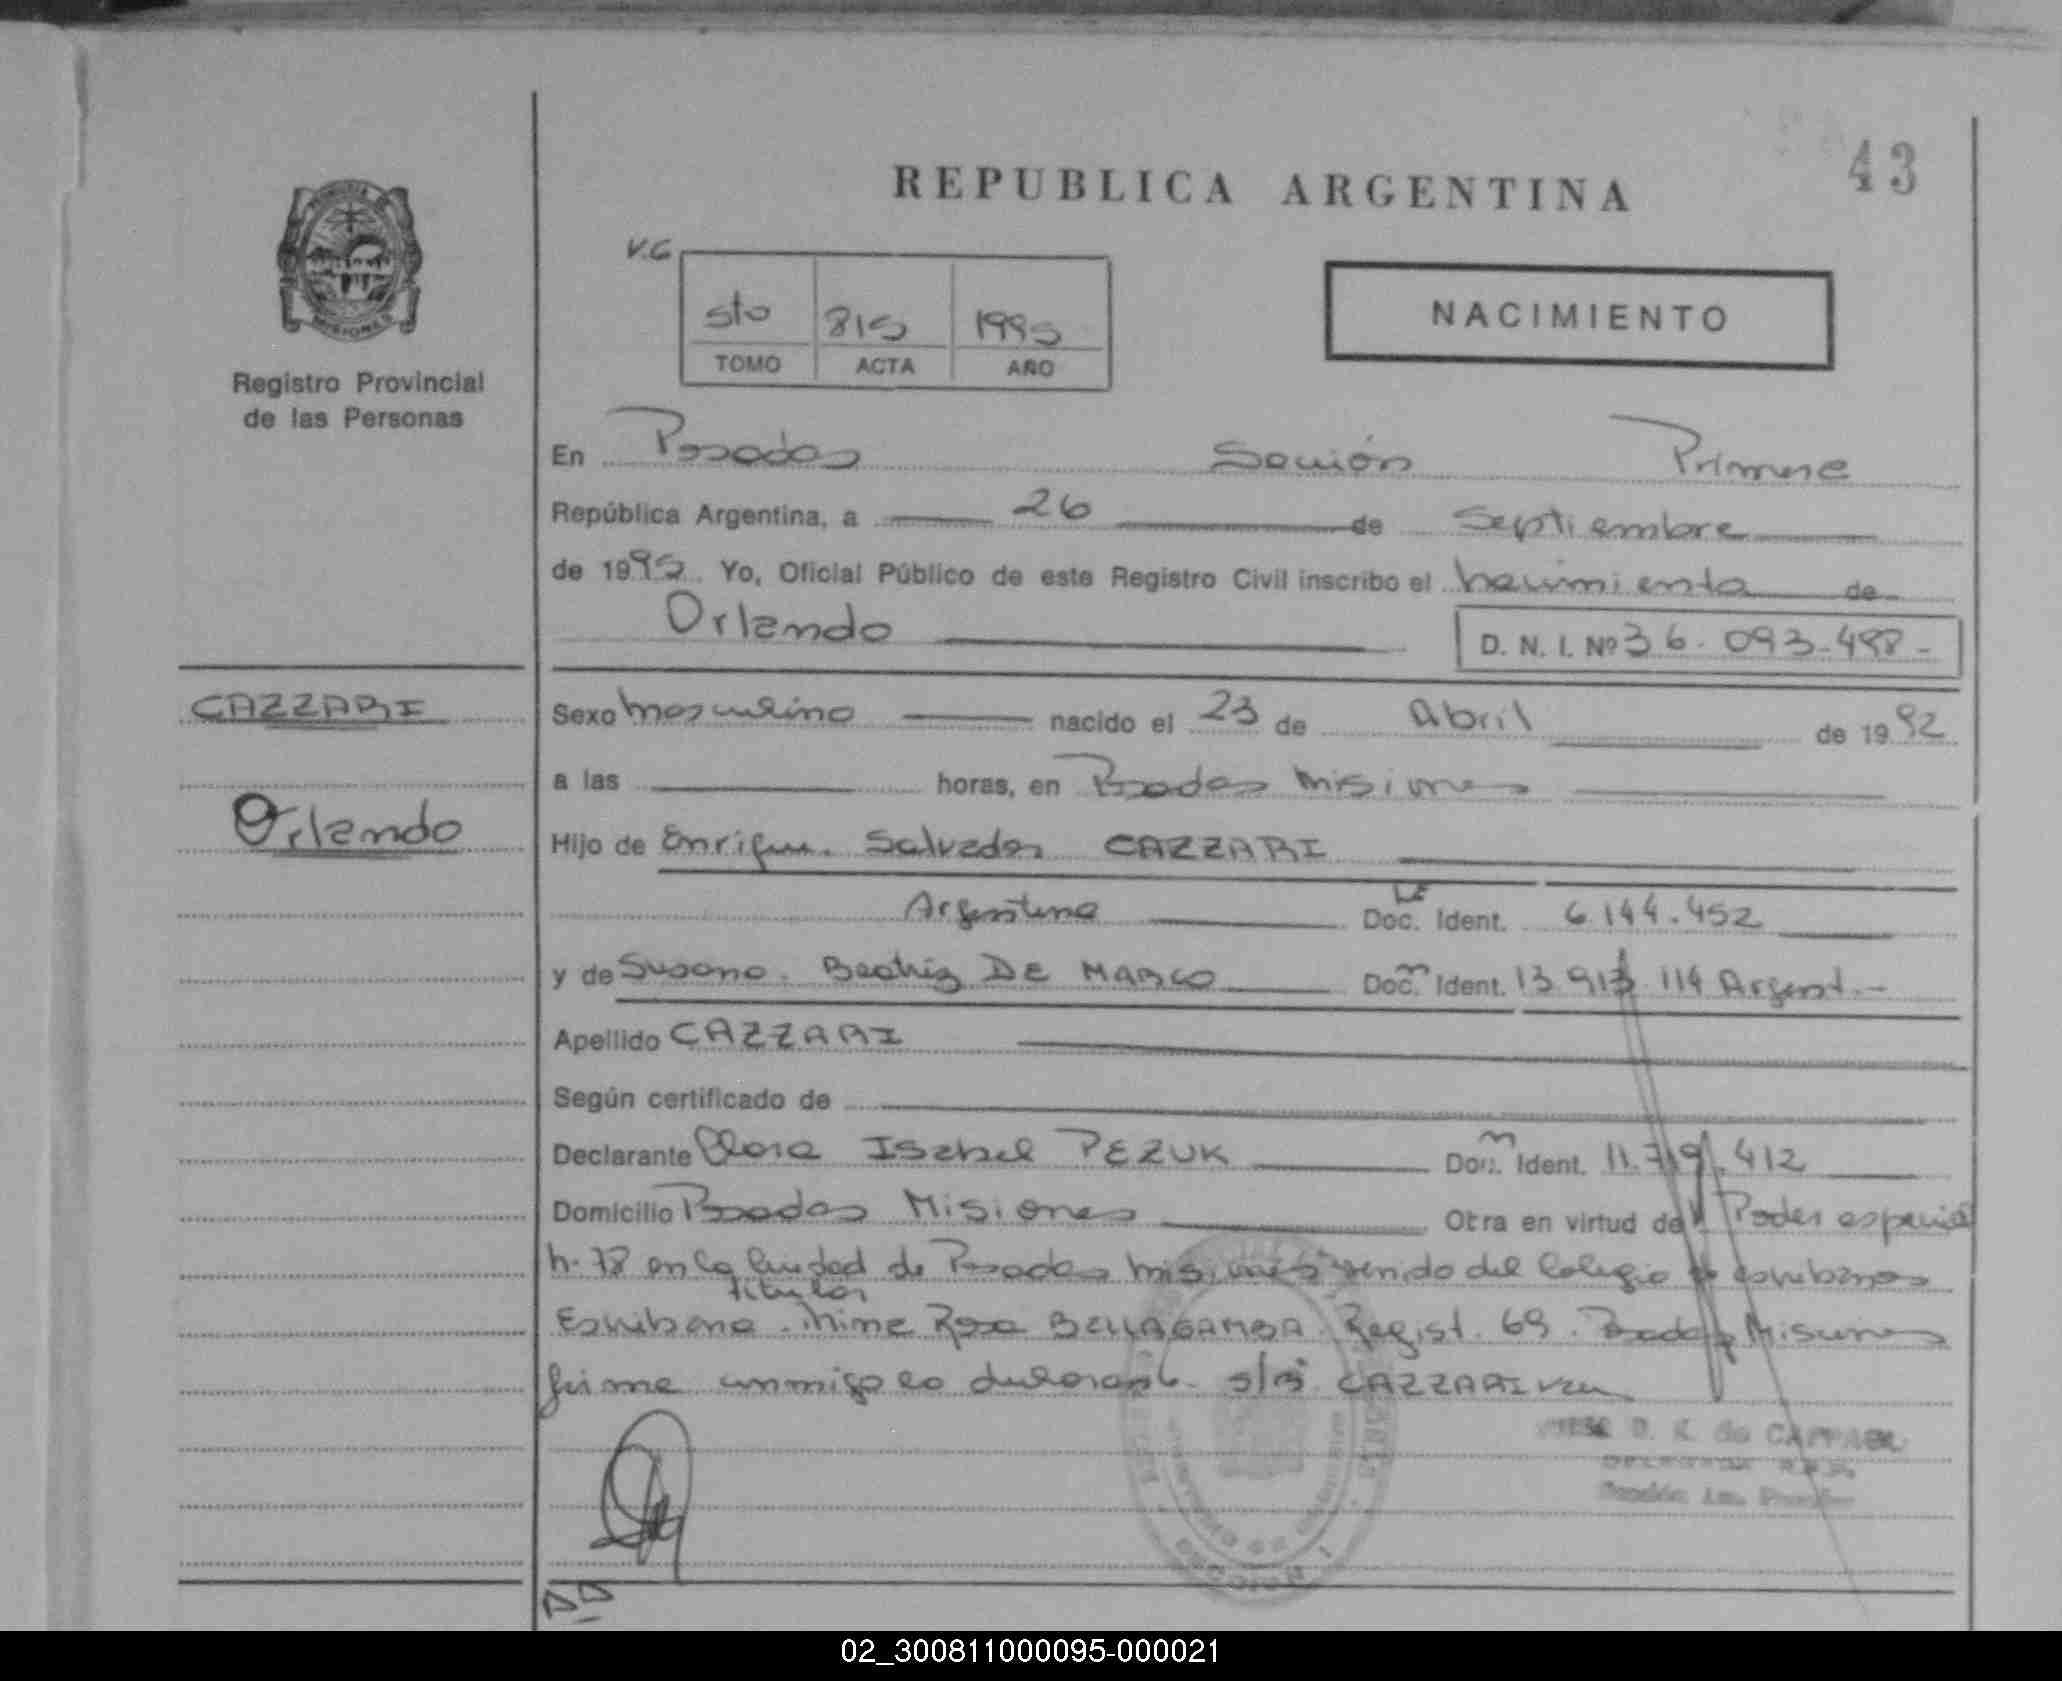 REPUBLICA ARGENTINA
43
MISIONES
Registro Provincial
de las Personas
V.G
5to 815 1995
TOMO ACTA AÑO
NACIMIENTO
En Posadas Sección Primera
República Argentina, a 26 de Septiembre
de 1995. Yo, Oficial Público de este Registro Civil inscribo el nacimiento de
Orlando
D. N. I. Nº 36.093.488-
CAZZARI
Orlando
Sexo Masculino nacido el 23 de Abril de 1992
a las horas, en Posadas Misiones
Hijo de Enrique Salvador CAZZARI
Argentino LE Doc. Ident. 6.144.452
y de Susana Beatriz DE MARCO Doc. Ident. 13.913.114 Argent.-
Apellido CAZZARI
Según certificado de
Declarante Isabel PEZUK Doc. Ident. 11.719.412
Domicilio Posadas Misiones Otra en virtud de Poder especial
n. 78 en la Ciudad de Posadas Misiones venido del Colegio de escribanos
titular
Escribana Rosa BELLAGAMBA. Regist. 69. Posadas Misiones
firma conmigo declarante. CAZZARI
D. K. de
02_300811000095-000021